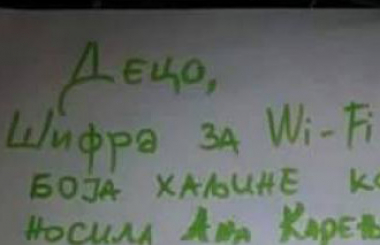 Децо,
Шифра за Wi-Fi
БОЈА ХАЉИНЕ
НОСИЛА АНА